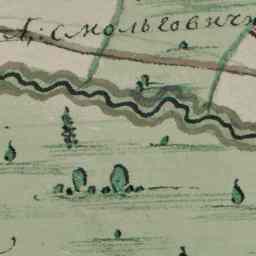 Д: смольговичи